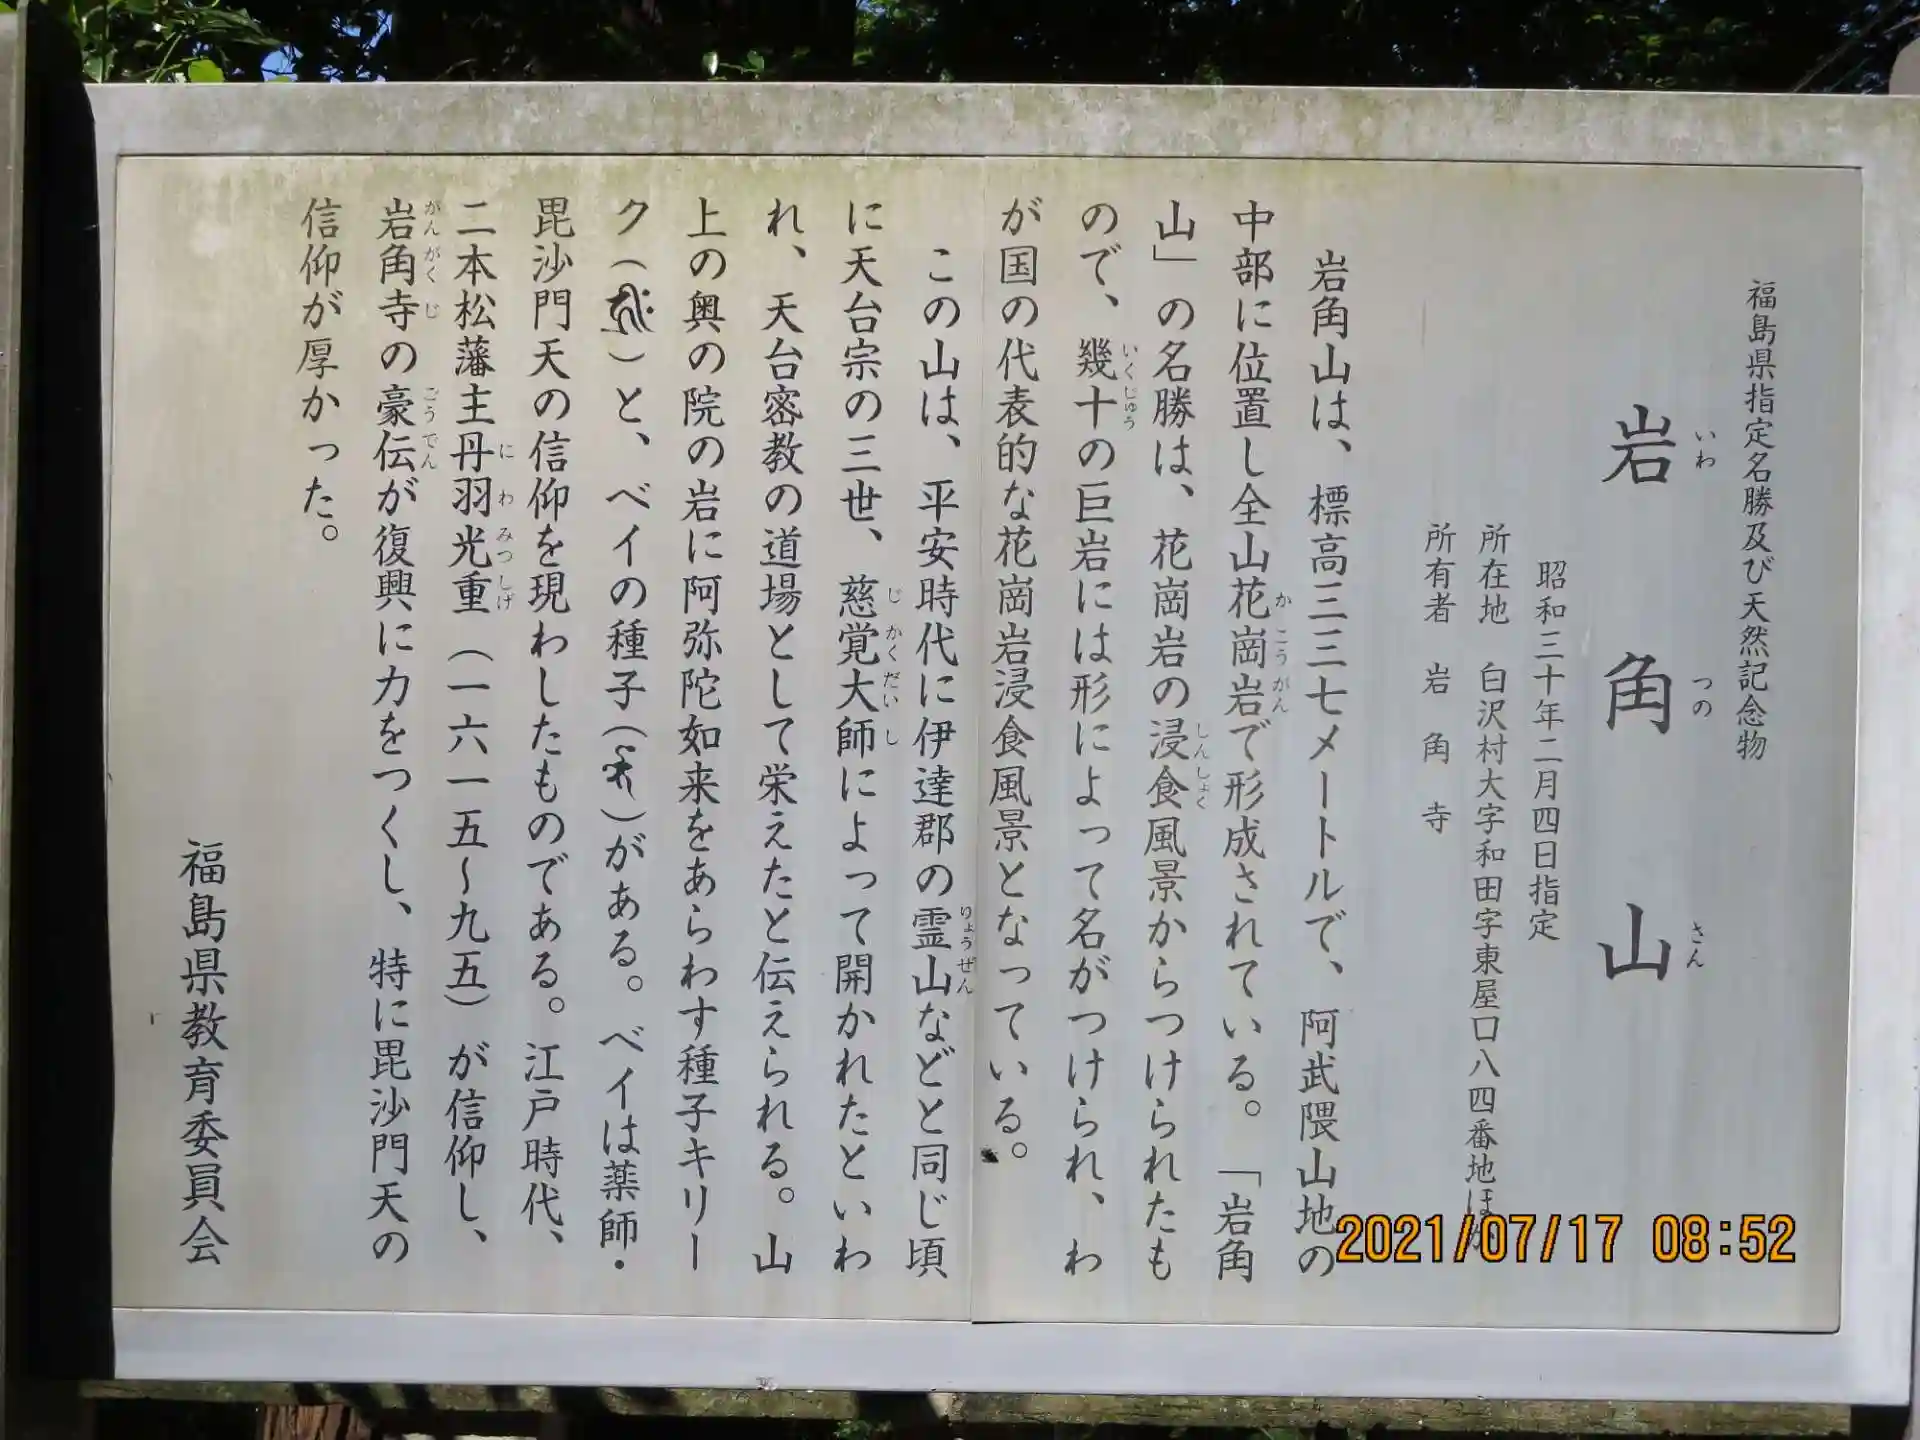 福島県指定名勝及び天然記念物
岩角山
いわ つの さん
昭和三十年二月四日指定
所在地 白沢村大字和田字東屋口八四番地ほか
所有者 岩角寺
岩角山は、標高三三七メートルで、阿武隈山地の
中部に位置し全山花崗岩で形成されている。「岩角
か こう がん
山」の名勝は、花崗岩の浸食風景からつけられたも
しん しょく
ので、幾十の巨岩には形によって名がつけられ、わ
いく じゅう
が国の代表的な花崗岩浸食風景となっている。
この山は、平安時代に伊達郡の霊山などと同じ頃
りょう ぜん
に天台宗の三世、慈覚大師によって開かれたといわ
じ かく だい し
れ、天台密教の道場として栄えたと伝えられる。山
上の奥の院の岩に阿弥陀如来をあらわす種子キリー
ク()と、ベイの種子()がある。ベイは薬師・
毘沙門天の信仰を現わしたものである。江戸時代、
二本松藩主丹羽光重(一六一五〜九五)が信仰し、
に わ みつ しげ
岩角寺の豪伝が復興に力をつくし、特に毘沙門天の
がん がく じ ごう でん
信仰が厚かった。
福島県教育委員会
2021/07/17 08:52